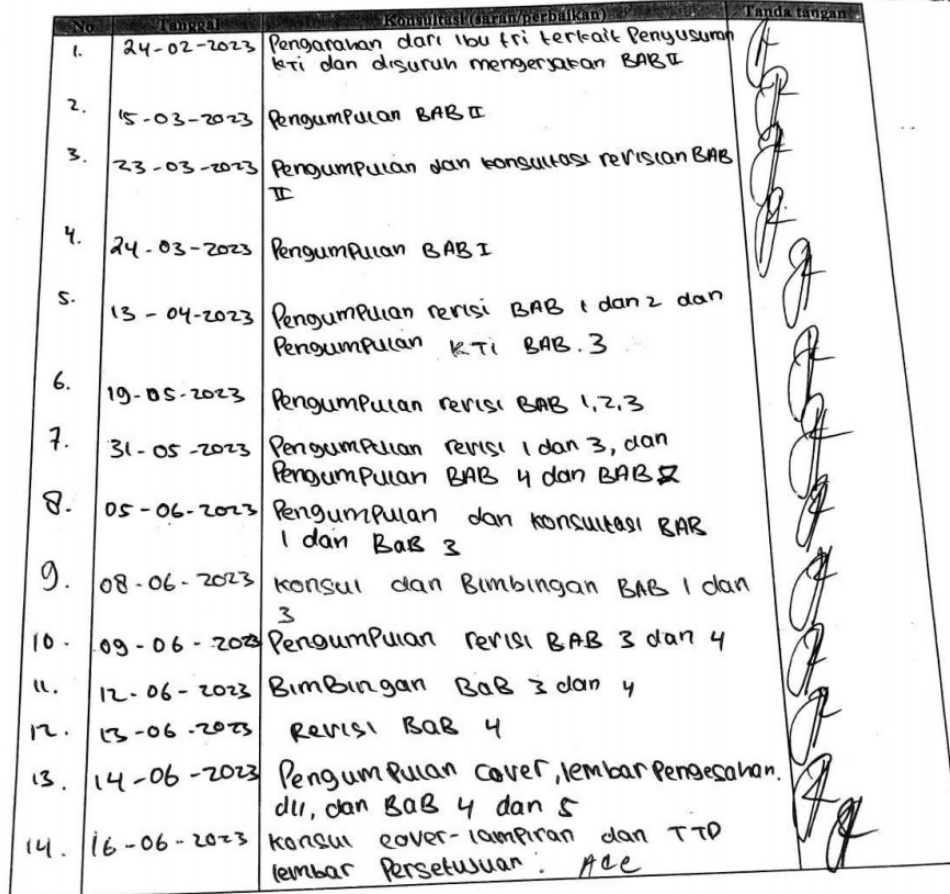 No. Tanggal Konsultasi (saran/perbaikan) Tanda tangan
1. 24-02-2023 Pengarahan dari Ibu Tri terkait Penyusunan
KTi dan disuruh mengerjakan BAB II
2. 15-03-2023 Pengumpulan BAB II
3. 23-03-2023 Pengumpulan dan konsultasi revisian BAB
II
4. 24-03-2023 Pengumpulan BAB I
5. 13-04-2023 Pengumpulan revisi BAB 1 dan 2 dan
Pengumpulan KTi BAB. 3
6. 19-05-2023 Pengumpulan revisi BAB 1,2,3
7. 31-05-2023 Pengumpulan revisi 1 dan 3, dan
Pengumpulan BAB 4 dan BAB
8. 05-06-2023 Pengumpulan dan konsultasi BAB
1 dan BaB 3
9. 08-06-2023 konsul dan Bimbingan BAB 1 dan
3
10. 09-06-2023 Pengumpulan revisi BAB 3 dan 4
11. 12-06-2023 BimBingan BaB 3 dan 4
12. 13-06-2023 Revisi BaB 4
13. 14-06-2023 Pengumpulan cover, lembar Pengesahan.
dll, dan BaB 4 dan 5
14. 16-06-2023 konsul cover-lampiran dan TTD
lembar Persetujuan. Acc